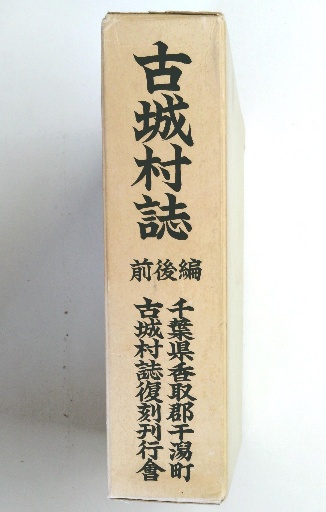 古城村誌
前後編
千葉県香取郡干潟町
古城村誌復刻刊行會